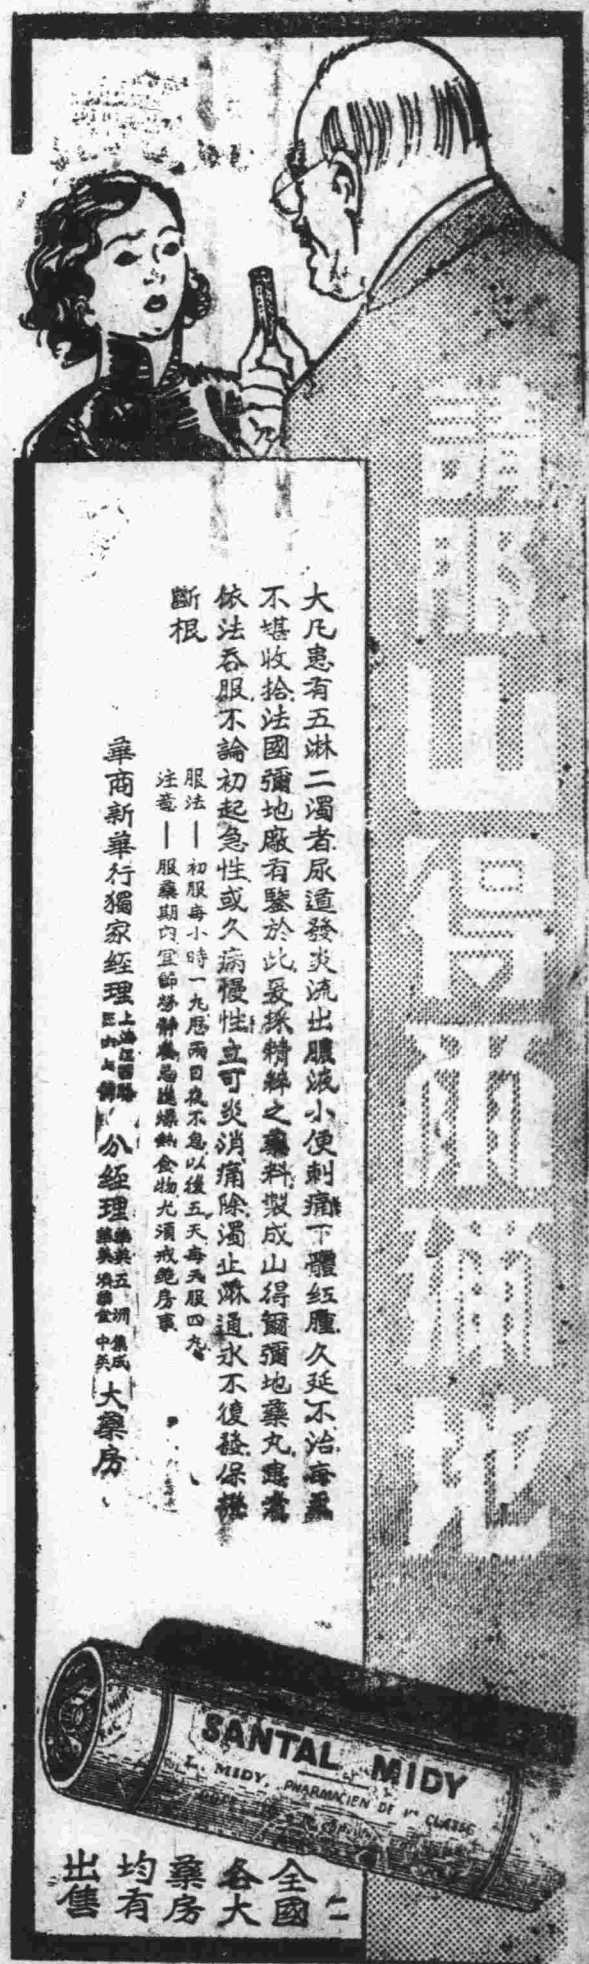 請服山得爾彌地
大凡患有五淋二濁者尿道發炎流出膿液小便刺痛下體紅腫久延不治每至
不堪收拾法國彌地廠有鑒於此爰採精粹之藥料製成山得爾彌地藥丸患者
依法吞服不論初起急性或久病慢性立可炎消痛除濁止淋通永不復發保證
斷根
服法—初服每小時一丸歷兩日夜不息以後五天每天服四丸
注意—服藥期內宜節勞靜養忌進燥熱食物尤須戒絕房事
華商新華行獨家經理
上海江西路
分經理
五洲 集成
中英
大藥房
SANTAL MIDY
L. MIDY, PHARMACIEN DE 1re CLASSE
全國
各大
藥房
均有
出售